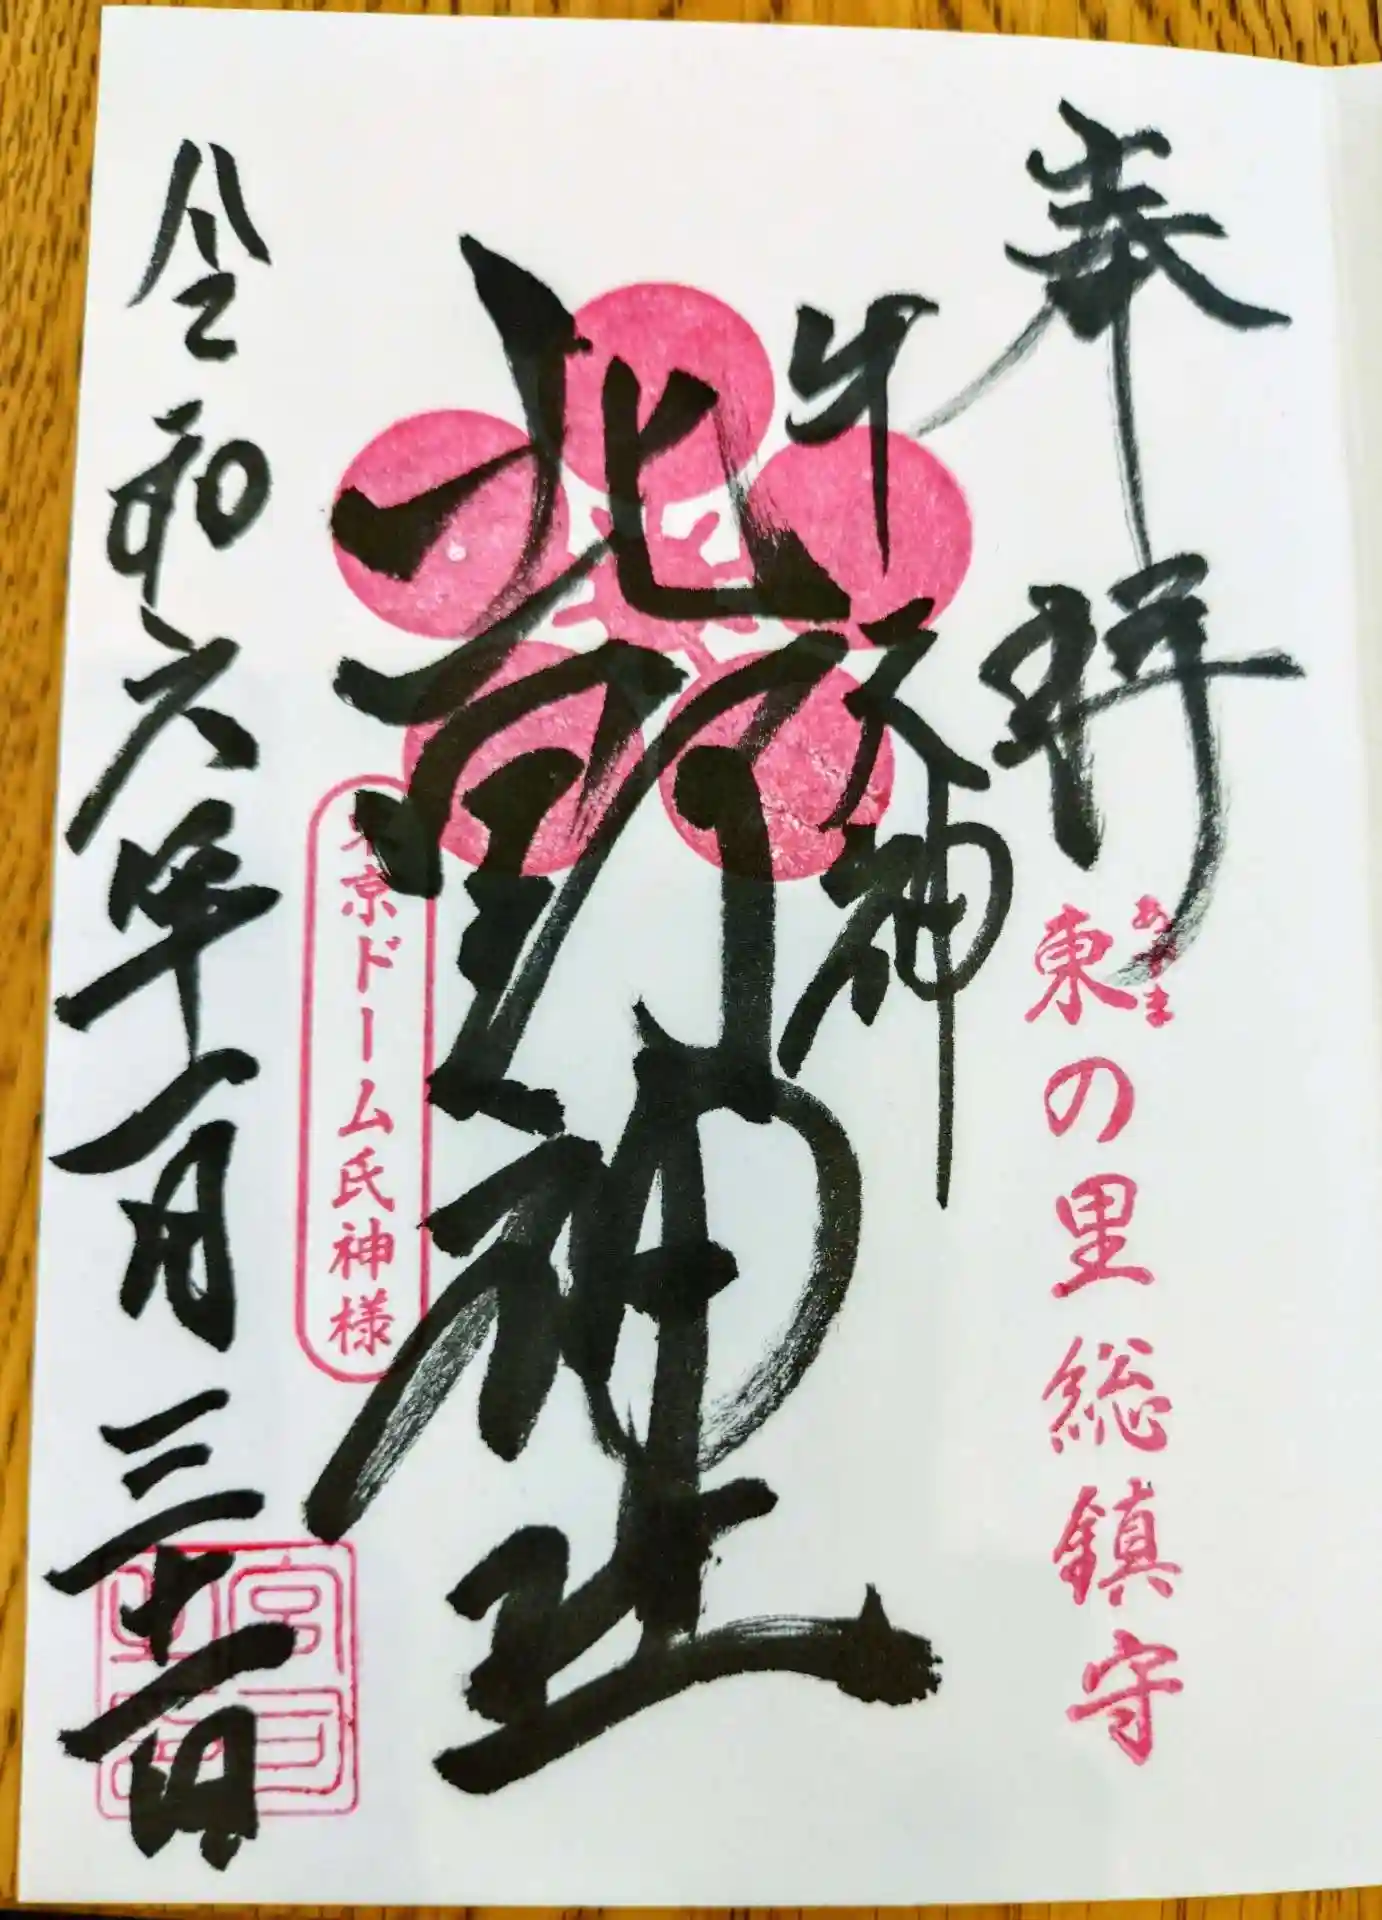 奉拝
東の里総鎮守
あずま
牛天神
北野神社
東京ドーム氏神様
令和六年一月三十一日